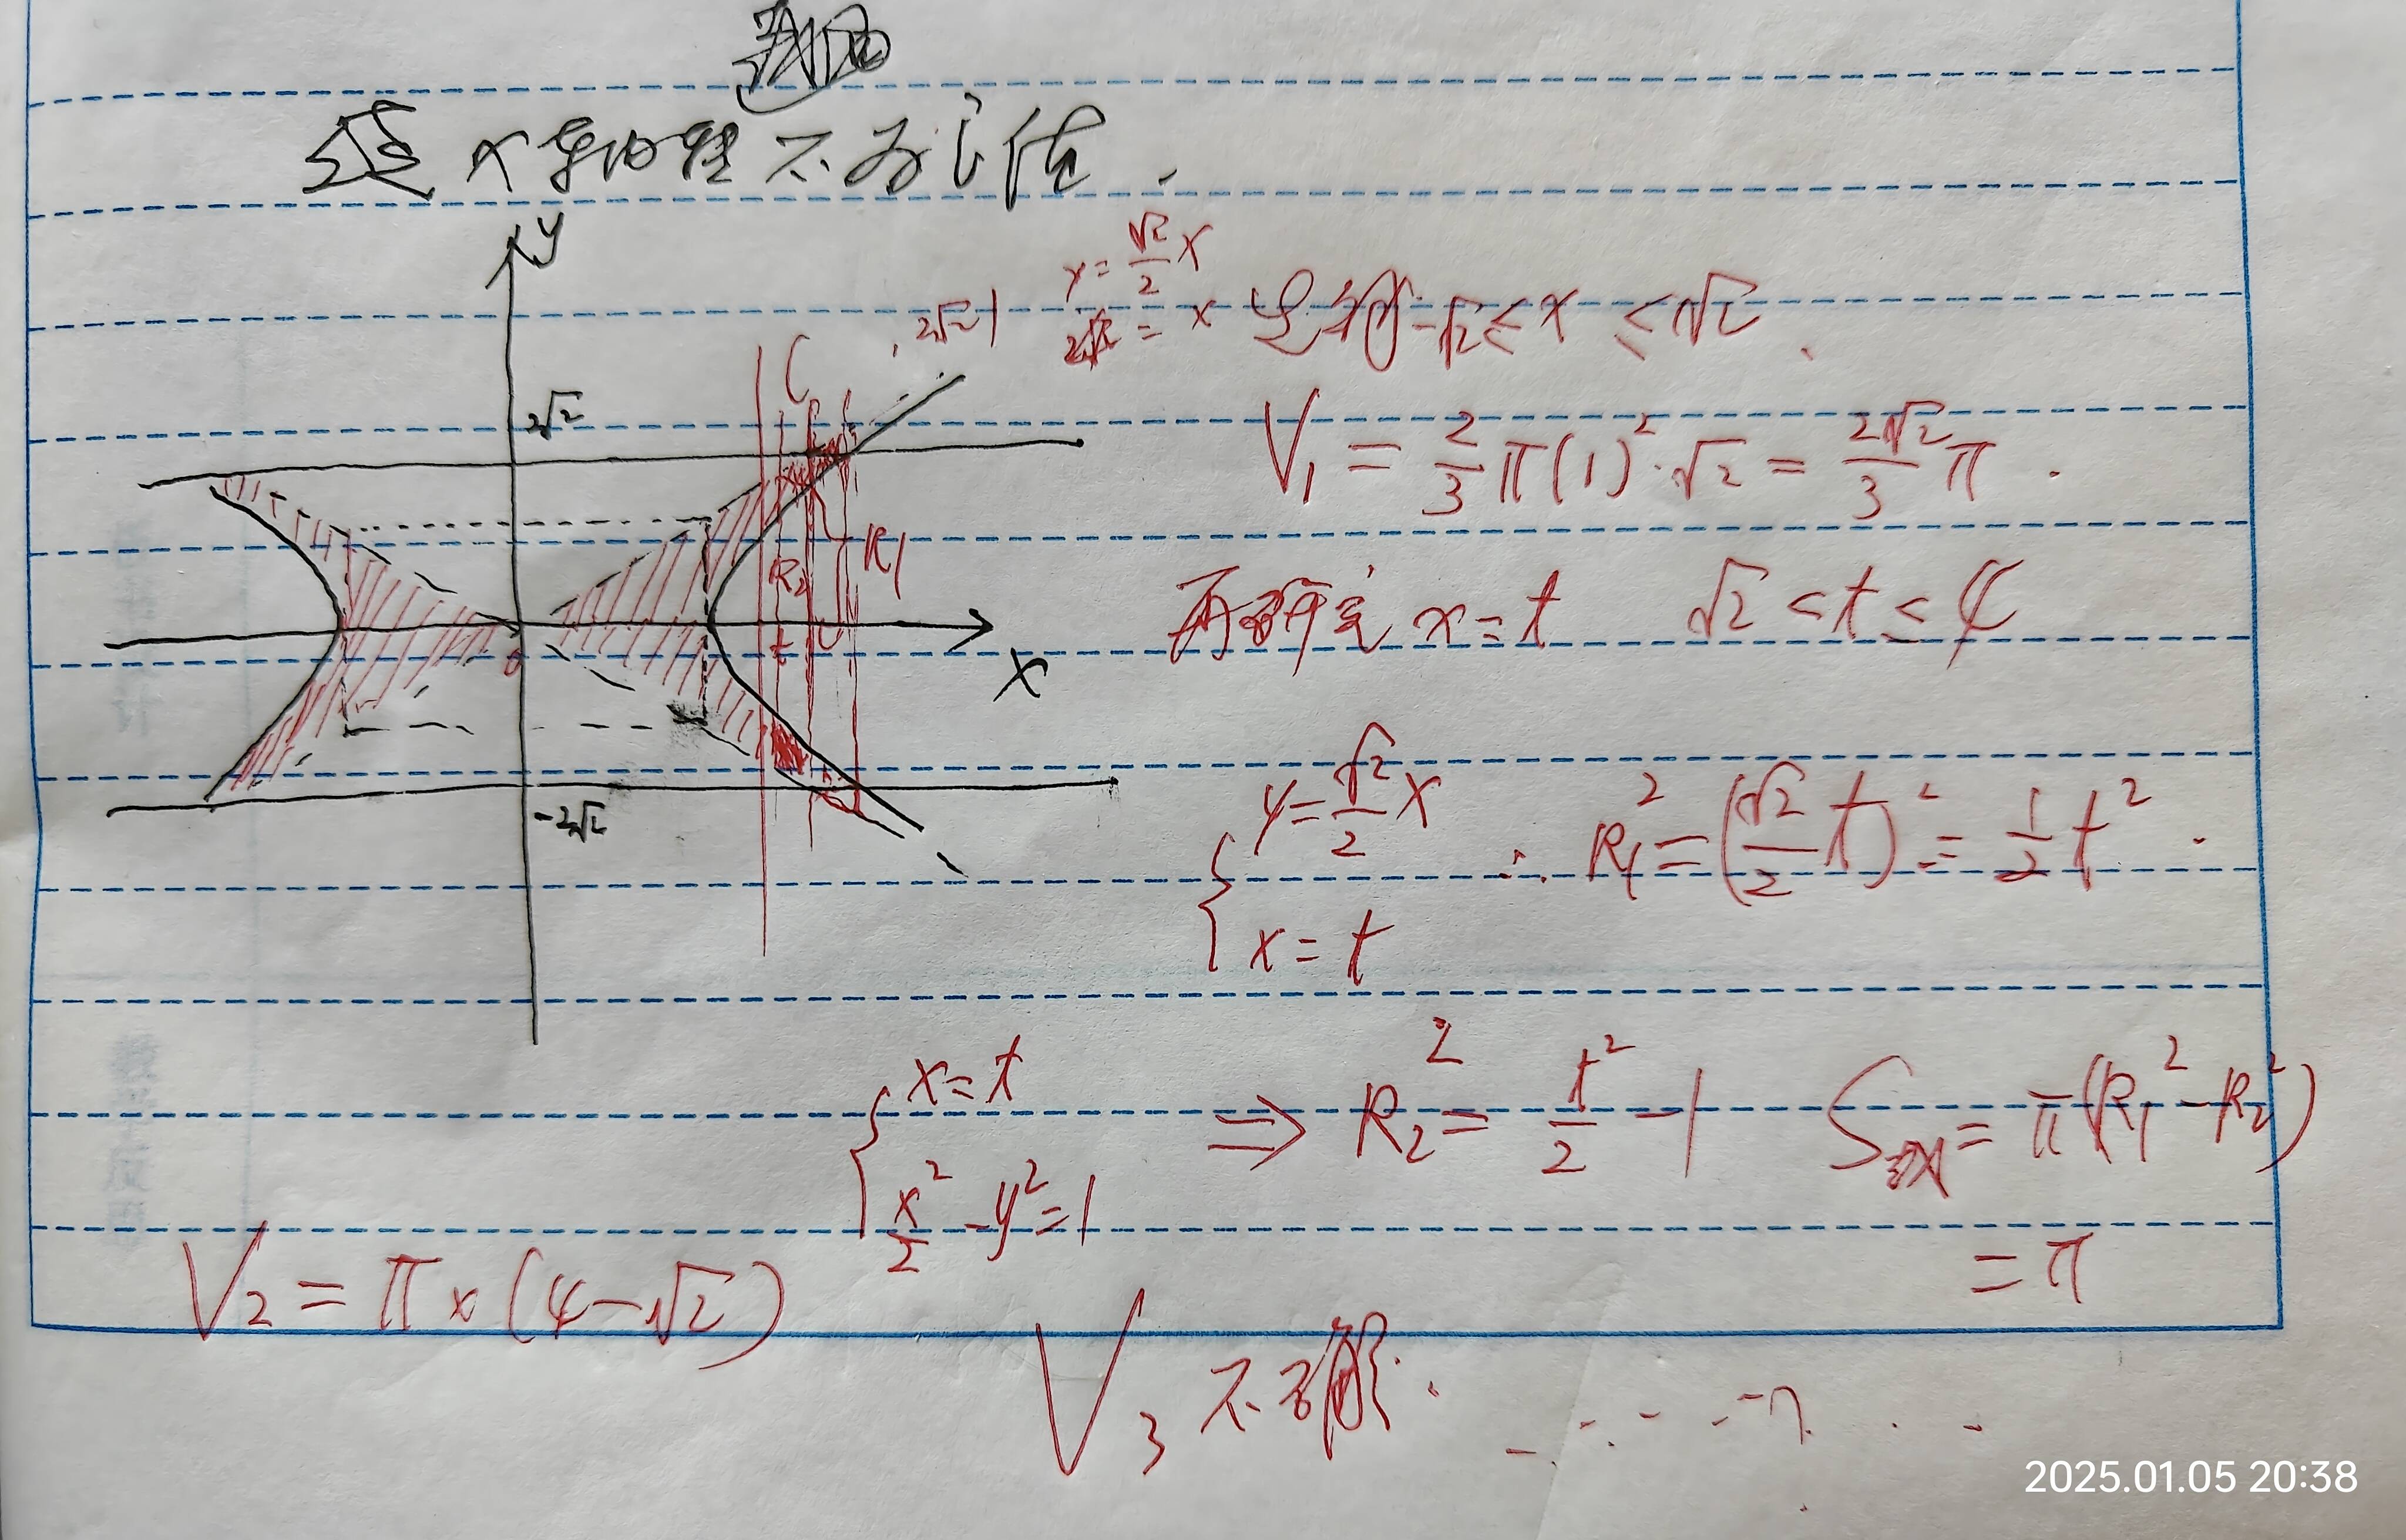 绕x轴转不可估.
y
y = √2/2 x
2√2 = x 先研 -√2 ≤ x ≤ √2.
, 2√2)
C
2√2
V₁ = 2/3 π(1)²·√2 = 2√2/3 π.
R₁
R₂
t
0
x
再研究 x = t √2 < t ≤ 4
-2√2
{ y = √2/2 x
x = t
∴ R₁² = (√2/2 t)² = 1/2 t².
{ x = t
x²/2 - y² = 1
⇒ R₂² = t²/2 - 1 S = π(R₁² - R₂²)
= π
V₂ = π × (4 - √2)
V₃ 不可解.
2025.01.05 20:38